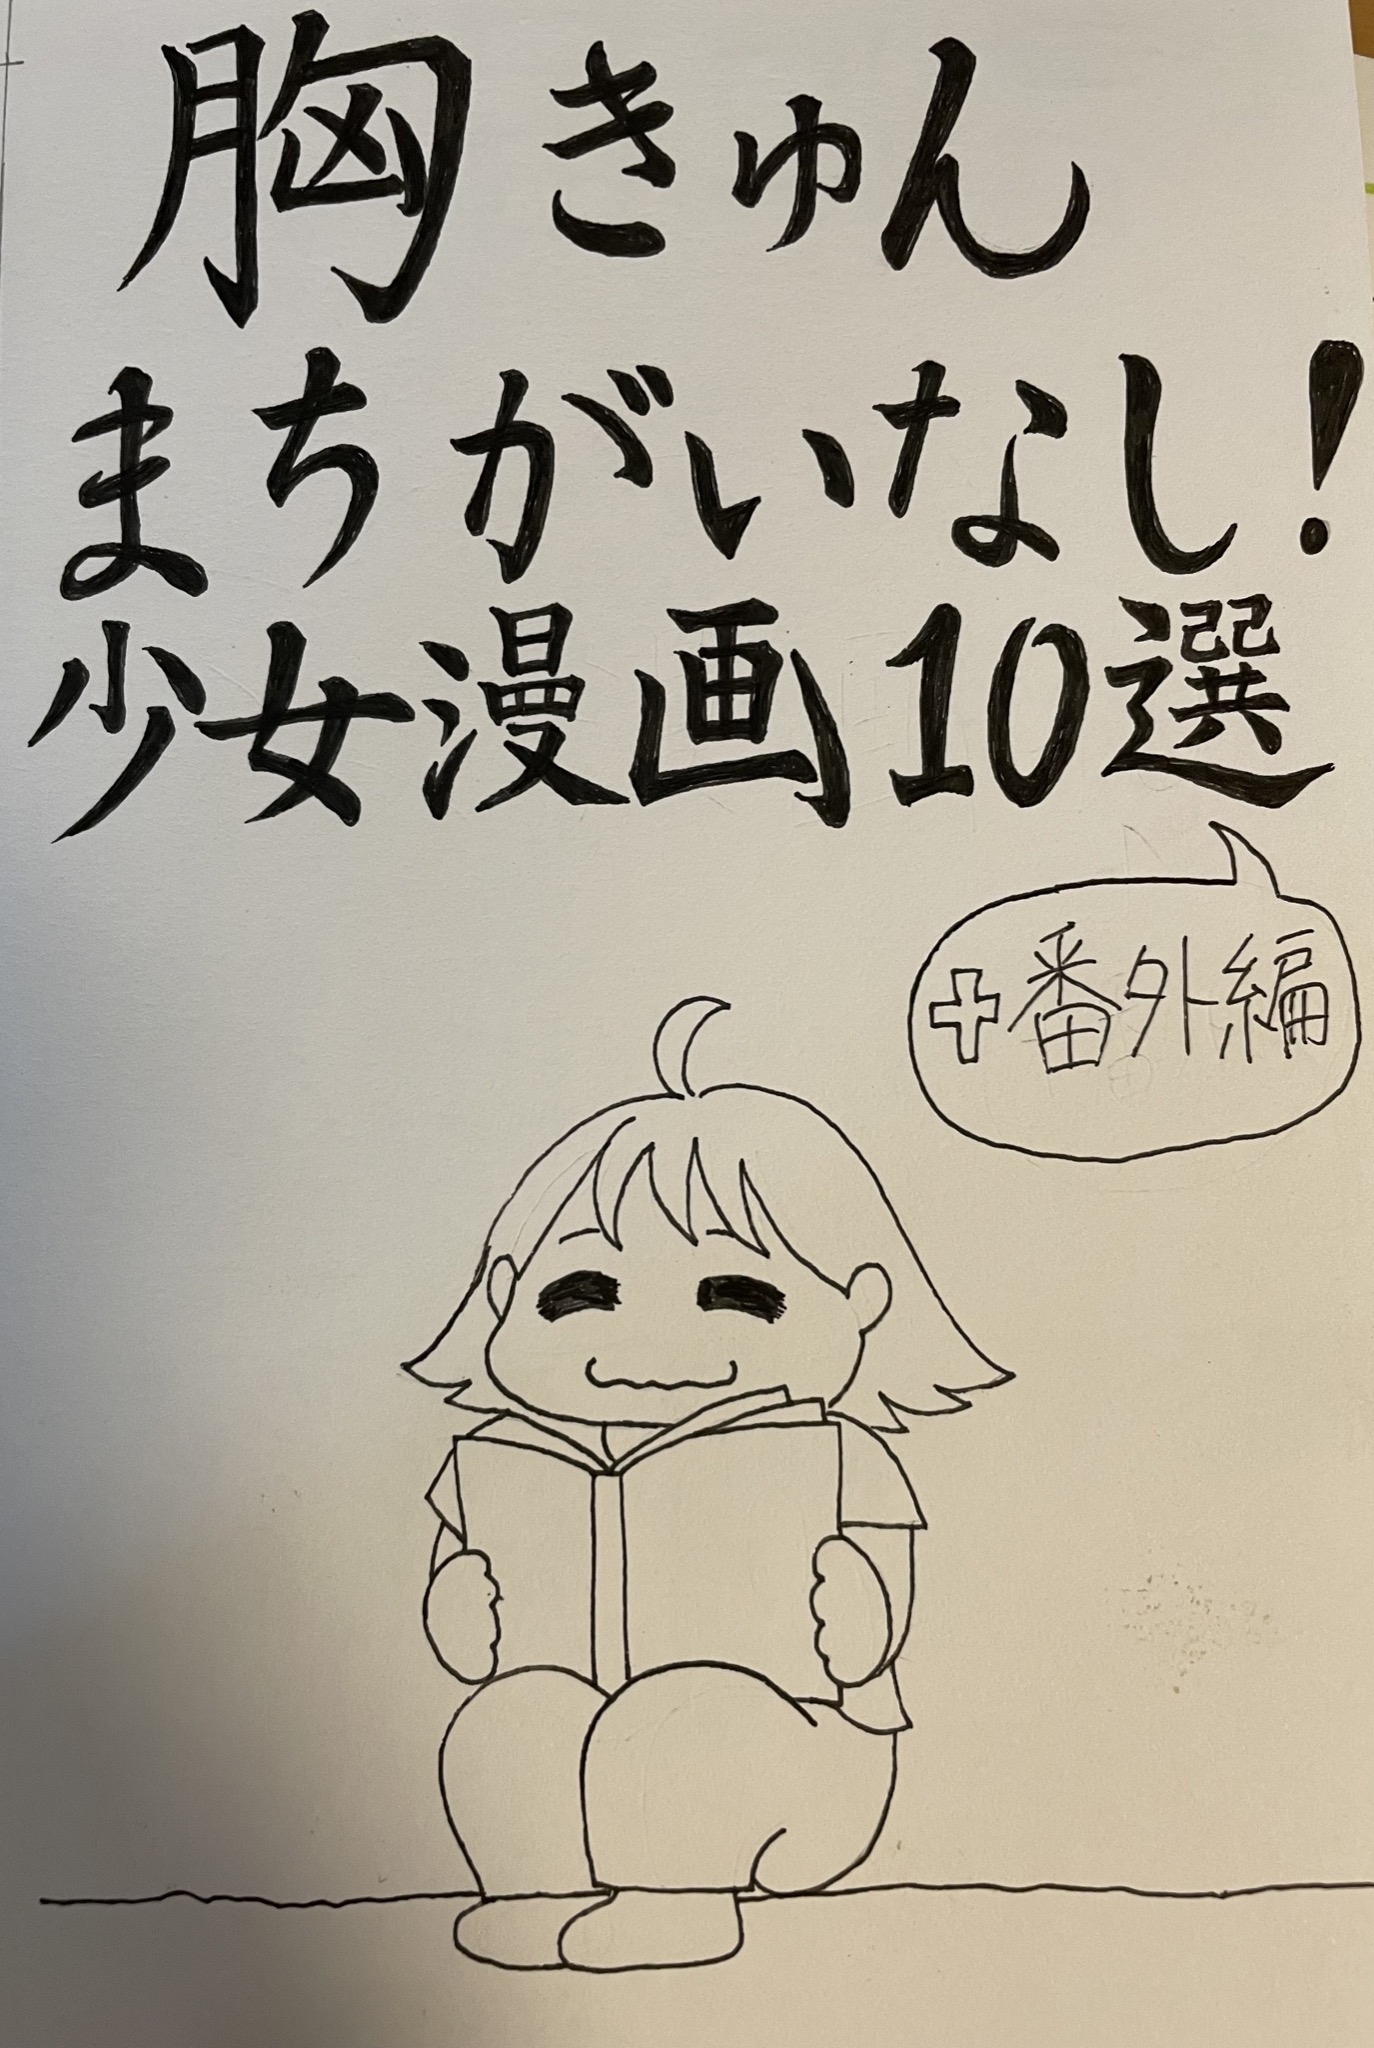 胸きゅん
まちがいなし！
少女漫画10選
+番外編